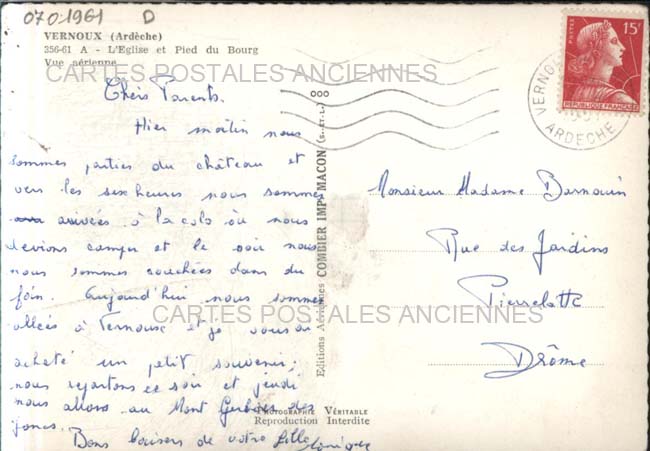 070-1961 D
VERNOUX (Ardèche)
356-61 A - L'Eglise et Pied du Bourg
Vue aérienne
CARTES POSTALES ANCIENNES
15F
POSTES
REPUBLIQUE FRANÇAISE
ARDECHE
Chers Parents.
Hier matin nous
sommes parties du château et
vers les six heures nous sommes
arrivées à la colo où nous
devions camper et le soir nous
nous sommes couchées dans du
foin. Aujourd'hui nous sommes
allées à Vernoux et je vous ai
acheté un petit souvenir;
nous repartons ce soir et jeudi
nous allons au Mont Gerbier des
joncs.
Bons baisers de votre fille
Monsieur Madame Barnouin
Rue des Jardins
Pierrelatte
Drôme
Editions Aériennes COMBIER IMPr MACON (S.-ET-L.)
CARTES POSTALES ANCIENNES
PHOTOGRAPHIE VÉRITABLE
Reproduction Interdite